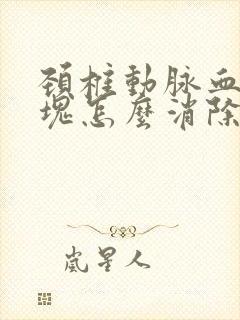 頸椎動脉血
塊怎麼消除
嵐星人